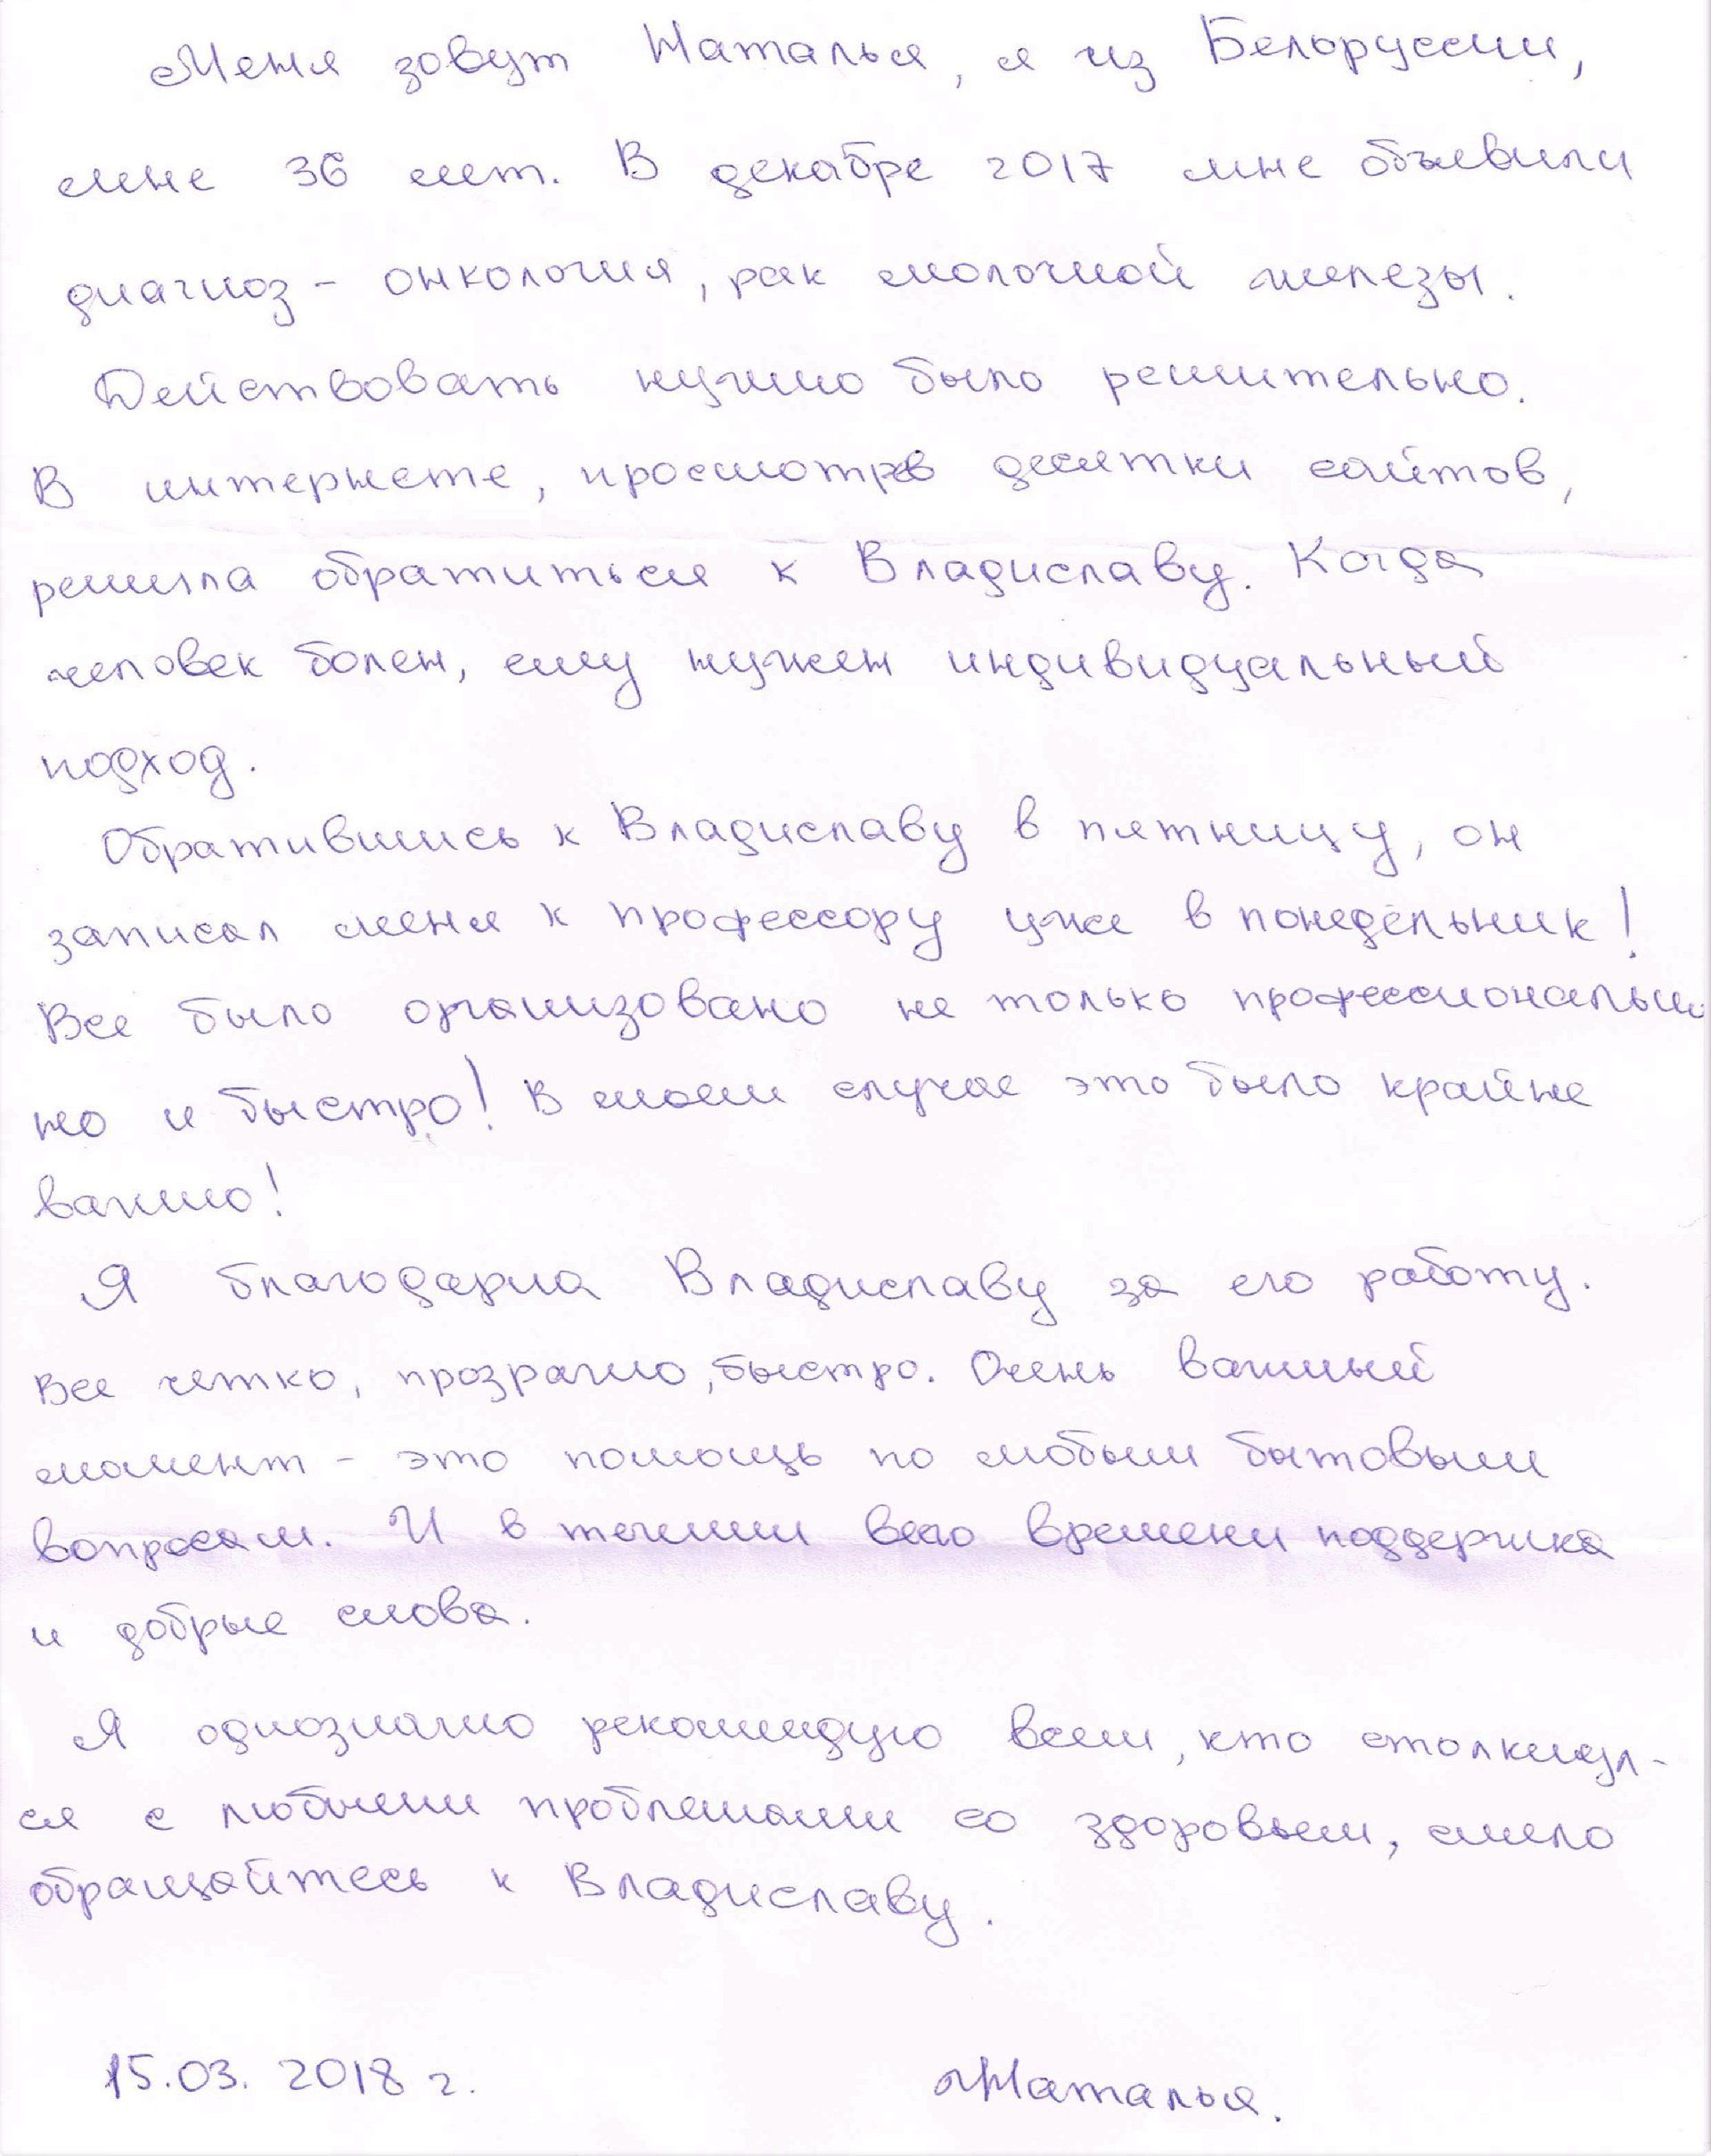 Меня зовут Наталья, я из Белоруссии,
мне 36 лет. В декабре 2017 мне объявили
диагноз - онкология, рак молочной железы.
Действовать нужно было решительно.
В интернете, просмотрев десятки сайтов,
решила обратиться к Владиславу. Когда
человек болен, ему нужен индивидуальный
подход.
Обратившись к Владиславу в пятницу, он
записал меня к профессору уже в понедельник!
Все было организовано не только профессионально
но и быстро! В моем случае это было крайне
важно!
Я благодарна Владиславу за его работу.
Все четко, прозрачно, быстро. Очень важный
момент - это помощь по любым бытовым
вопросам. И в течении всего времени поддержка
и добрые слова.
Я однозначно рекомендую всем, кто столкнул-
ся с любыми проблемами со здоровьем, смело
обращайтесь к Владиславу.
15.03. 2018 г.
Наталья.